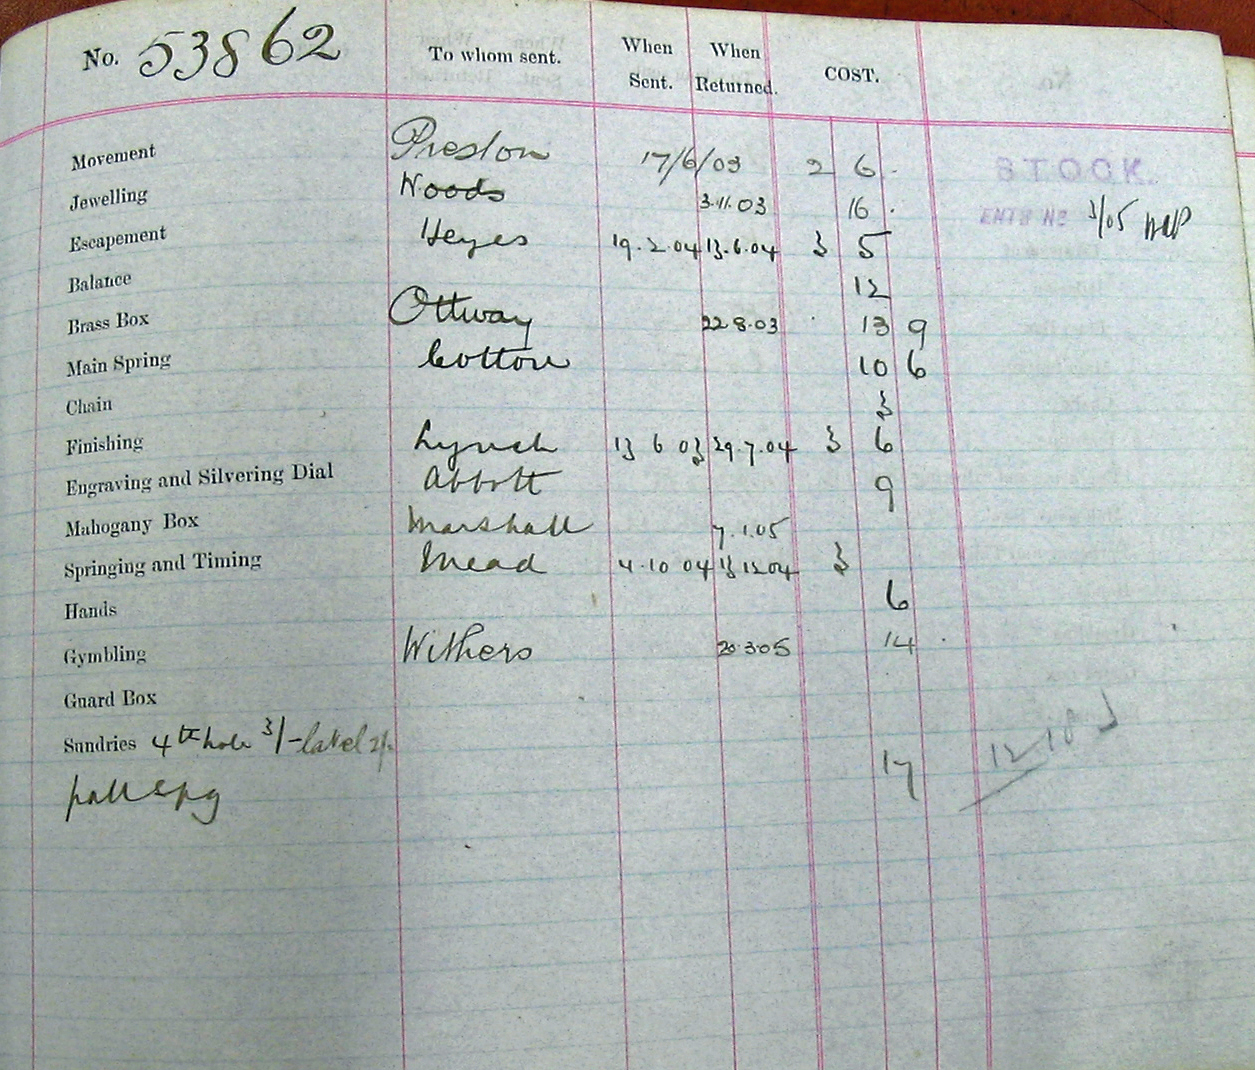 No. 53862 To whom sent. When Sent. When Returned. COST.
Movement Preston 17/6/03 2 6 .
STOCK.
Jewelling Woods 3.11.03 16 .
ENTD No 3/05
Escapement Heyes 19.2.04 13.6.04 3 5
Balance 12
Brass Box Ottway 22.8.03 13 9
Main Spring Cotton 10 6
Chain 3
Finishing Lynch 13 6 03 29.7.04 3 6
Engraving and Silvering Dial Abbott 9
Mahogany Box Marshall 7.1.05
Springing and Timing Mead 4.10 04 13 12 04 3
Hands 6
Gymbling Withers 20.3.05 14 .
Guard Box
Sundries 4th hole 3/- label 2/-
pall spg 17 12 18